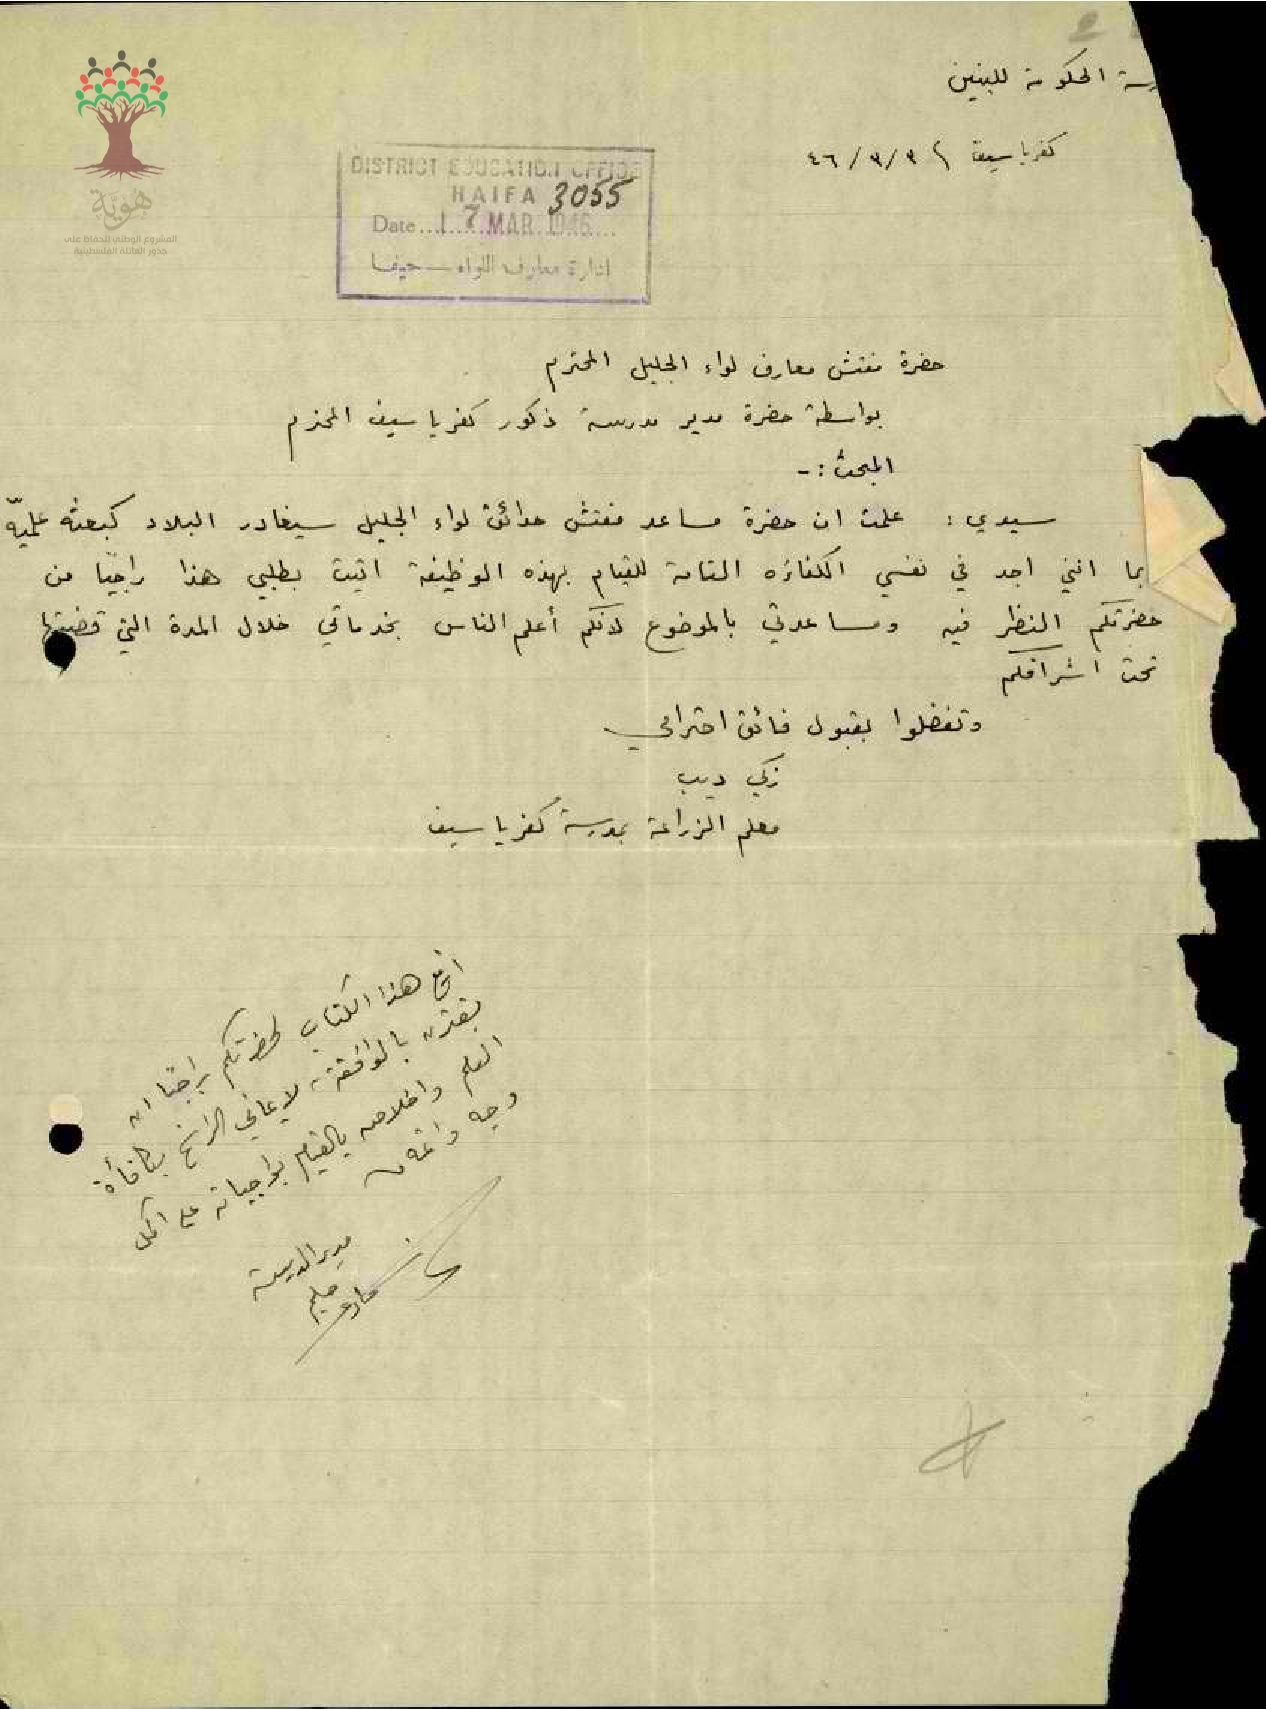 الحكومة للبنين
كفرياسيف في ٣/٣/٤٦
DISTRICT EDUCATION OFFICE
HAIFA 3055
Date 17 MAR 1946
ادارة معارف اللواء - حيفا
هوية
المشروع الوطني للحفاظ على
جذور العائلة الفلسطينية
حضرة مفتش معارف لواء الجليل المحترم
بواسطة حضرة مدير مدرسة ذكور كفرياسيف المحترم
المبحث :-
سيدي : علمت ان حضرة مساعد مفتش حدائق لواء الجليل سيغادر البلاد كبعثة علميّة
بما انني اجد في نفسي الكفاءه التامة للقيام بهذه الوظيفة اتيت بطلبي هذا راجيًا من
حضرتكم النظر فيه ومساعدتي بالموضوع لانكم أعلم الناس بخدماتي خلال المدة التي قضيتها
تحت اشرافكم
وتفضلوا بقبول فائق احترامي
زكي ديب
معلم الزراعة بمدرسة كفرياسيف
هذا الكتاب لحضرتكم راجيًا ان
يقترن بالموافقة لايماني الراسخ بكفاءة
المعلم واخلاصه بالقيام بواجباته على اكمل
وجه واتمه
مدير المدرسة